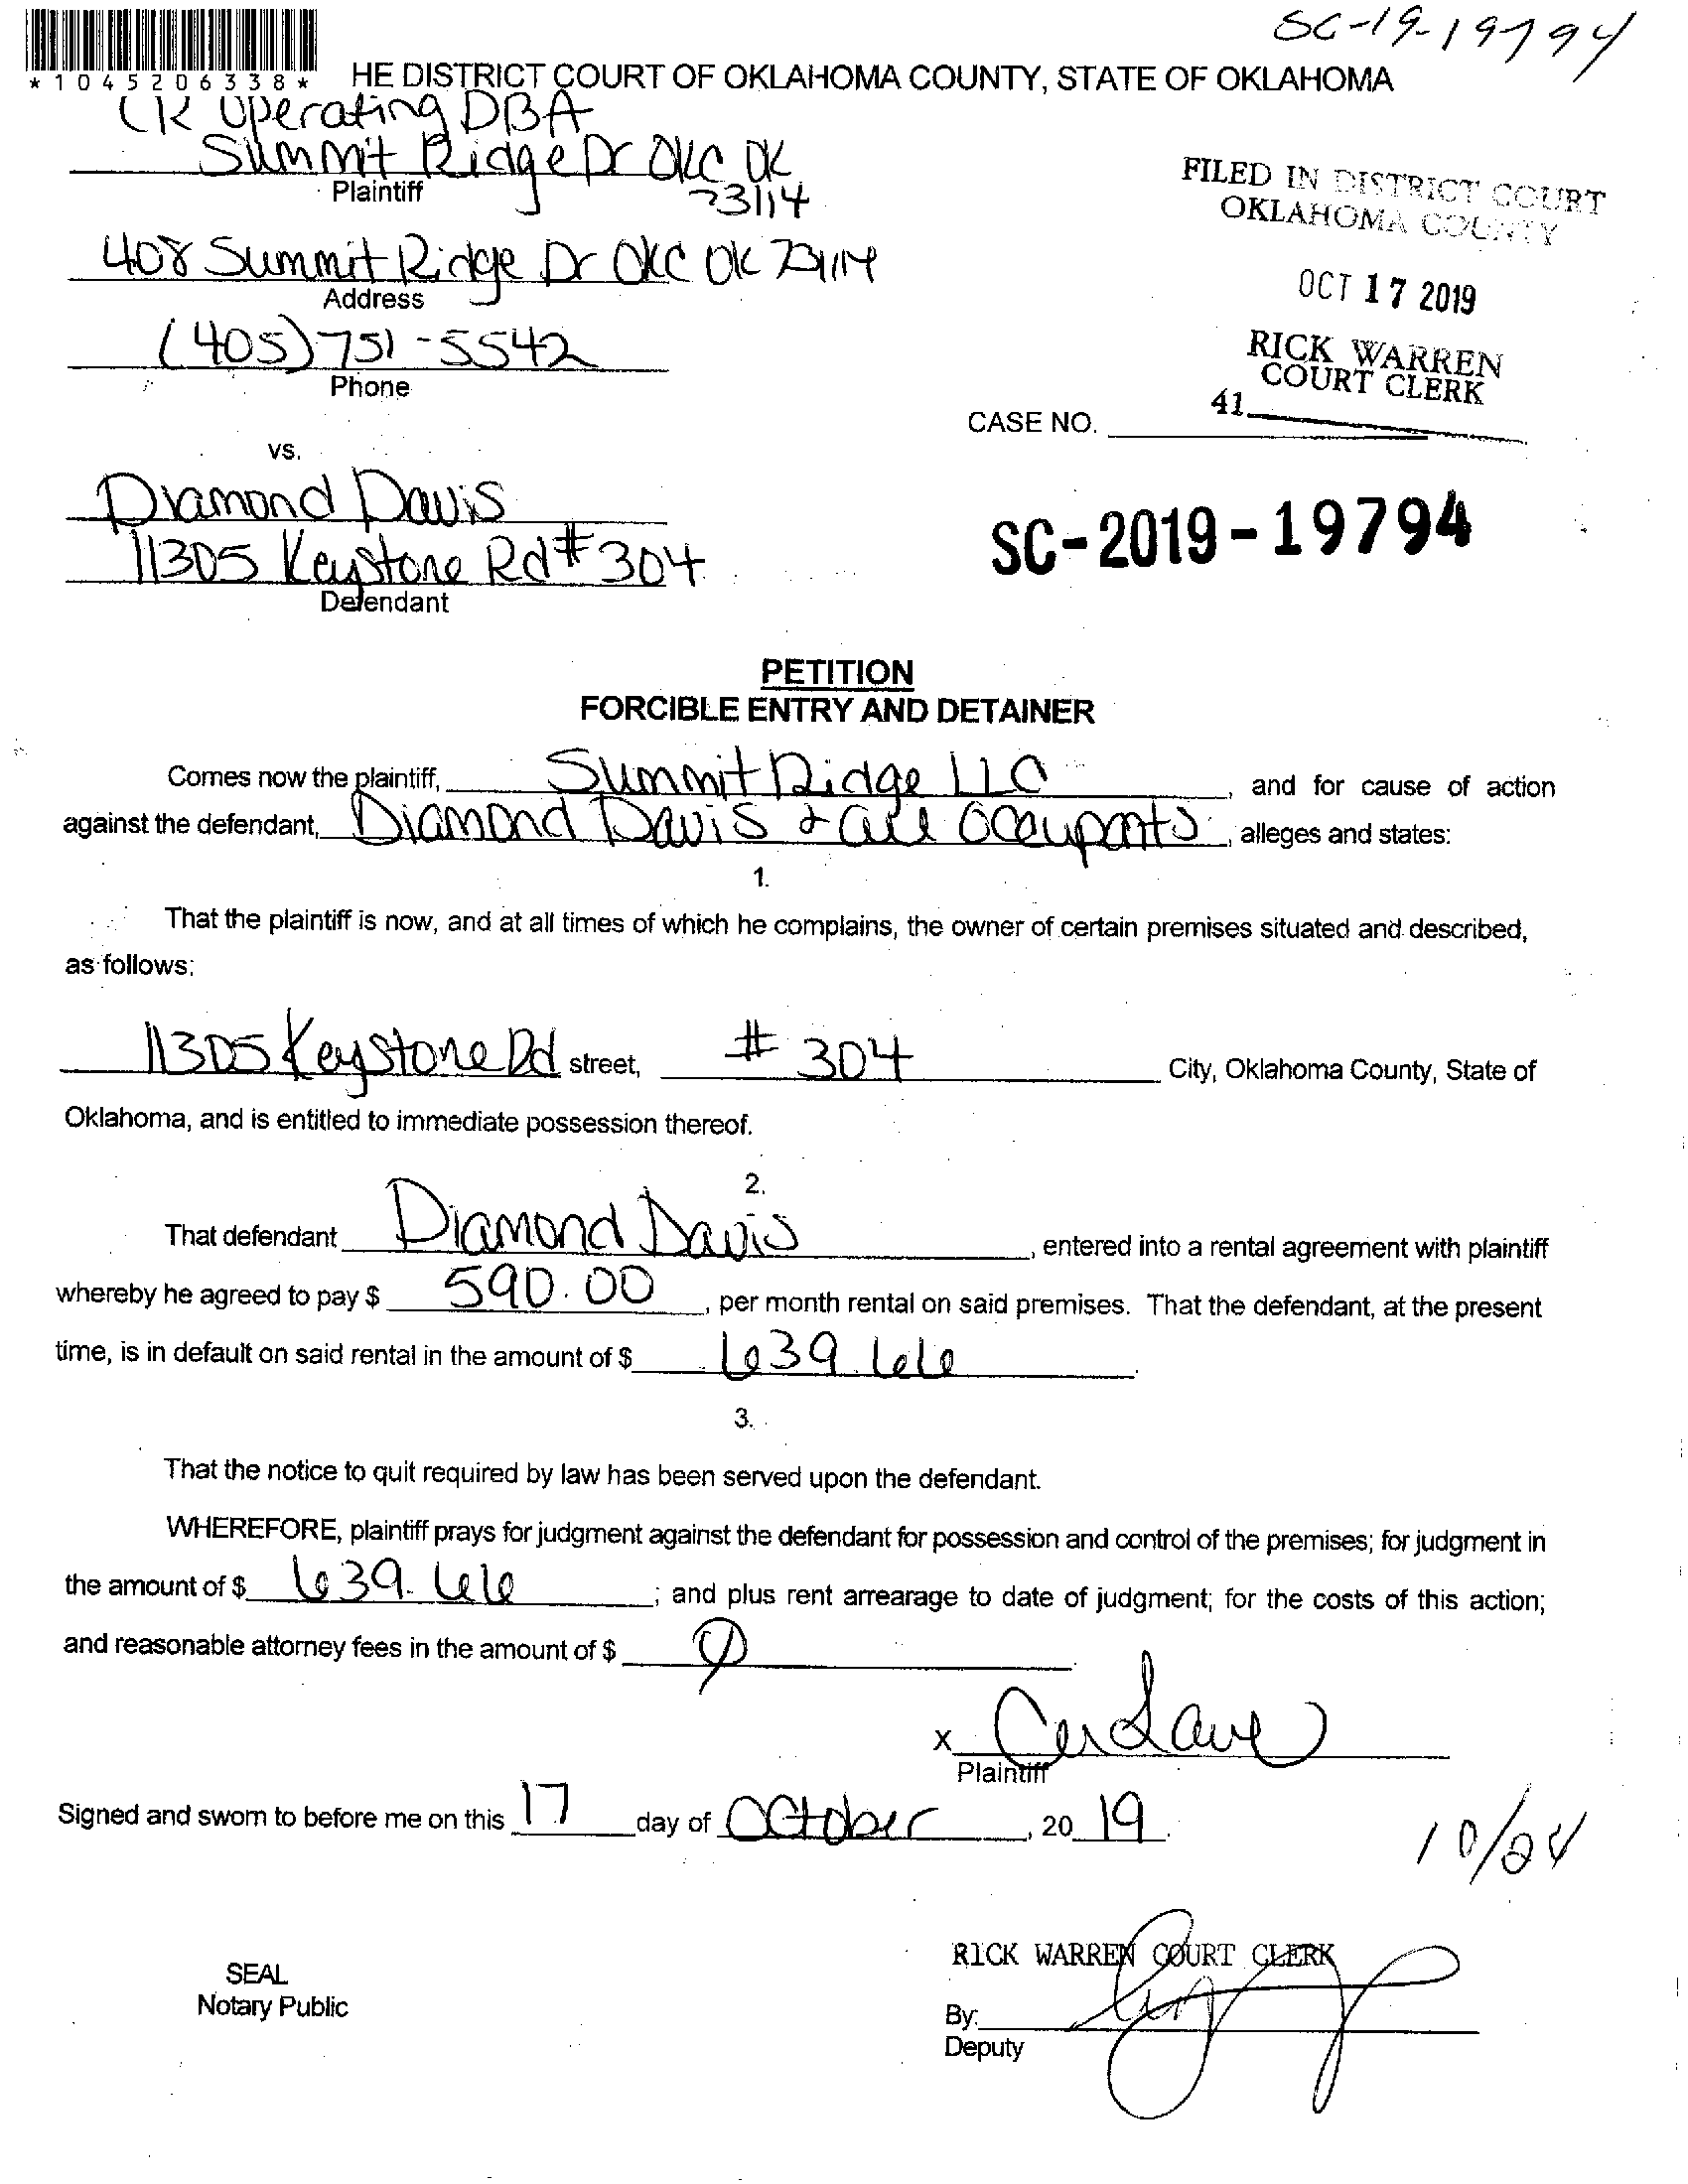 SC-19-19794
*1045206338*
HE DISTRICT COURT OF OKLAHOMA COUNTY, STATE OF OKLAHOMA
CK Operating DBA
Summit Ridge Dr OKC OK
73114
Plaintiff
FILED IN DISTRICT COURT
OKLAHOMA COUNTY
408 Summit Ridge Dr OKC OK 73114
Address
OCT 17 2019
(405) 751-5542
Phone
RICK WARREN
COURT CLERK
41
CASE NO.
vs.
Diamond Davis
11305 Keystone Rd #304
Defendant
SC-2019-19794
PETITION
FORCIBLE ENTRY AND DETAINER
Comes now the plaintiff, Summit Ridge LLC, and for cause of action
against the defendant, Diamond Davis & all Occupants, alleges and states:
1.
That the plaintiff is now, and at all times of which he complains, the owner of certain premises situated and described,
as follows:
11305 Keystone Rd street, # 304 City, Oklahoma County, State of
Oklahoma, and is entitled to immediate possession thereof.
2.
That defendant Diamond Davis, entered into a rental agreement with plaintiff
whereby he agreed to pay $ 590.00, per month rental on said premises. That the defendant, at the present
time, is in default on said rental in the amount of $ 639.66.
3.
That the notice to quit required by law has been served upon the defendant.
WHEREFORE, plaintiff prays for judgment against the defendant for possession and control of the premises; for judgment in
the amount of $ 639.66; and plus rent arrearage to date of judgment; for the costs of this action;
and reasonable attorney fees in the amount of $ Ø.
X
Plaintiff
Signed and sworn to before me on this 17 day of October, 20 19.
10/24
RICK WARREN COURT CLERK
SEAL
Notary Public
By:
Deputy